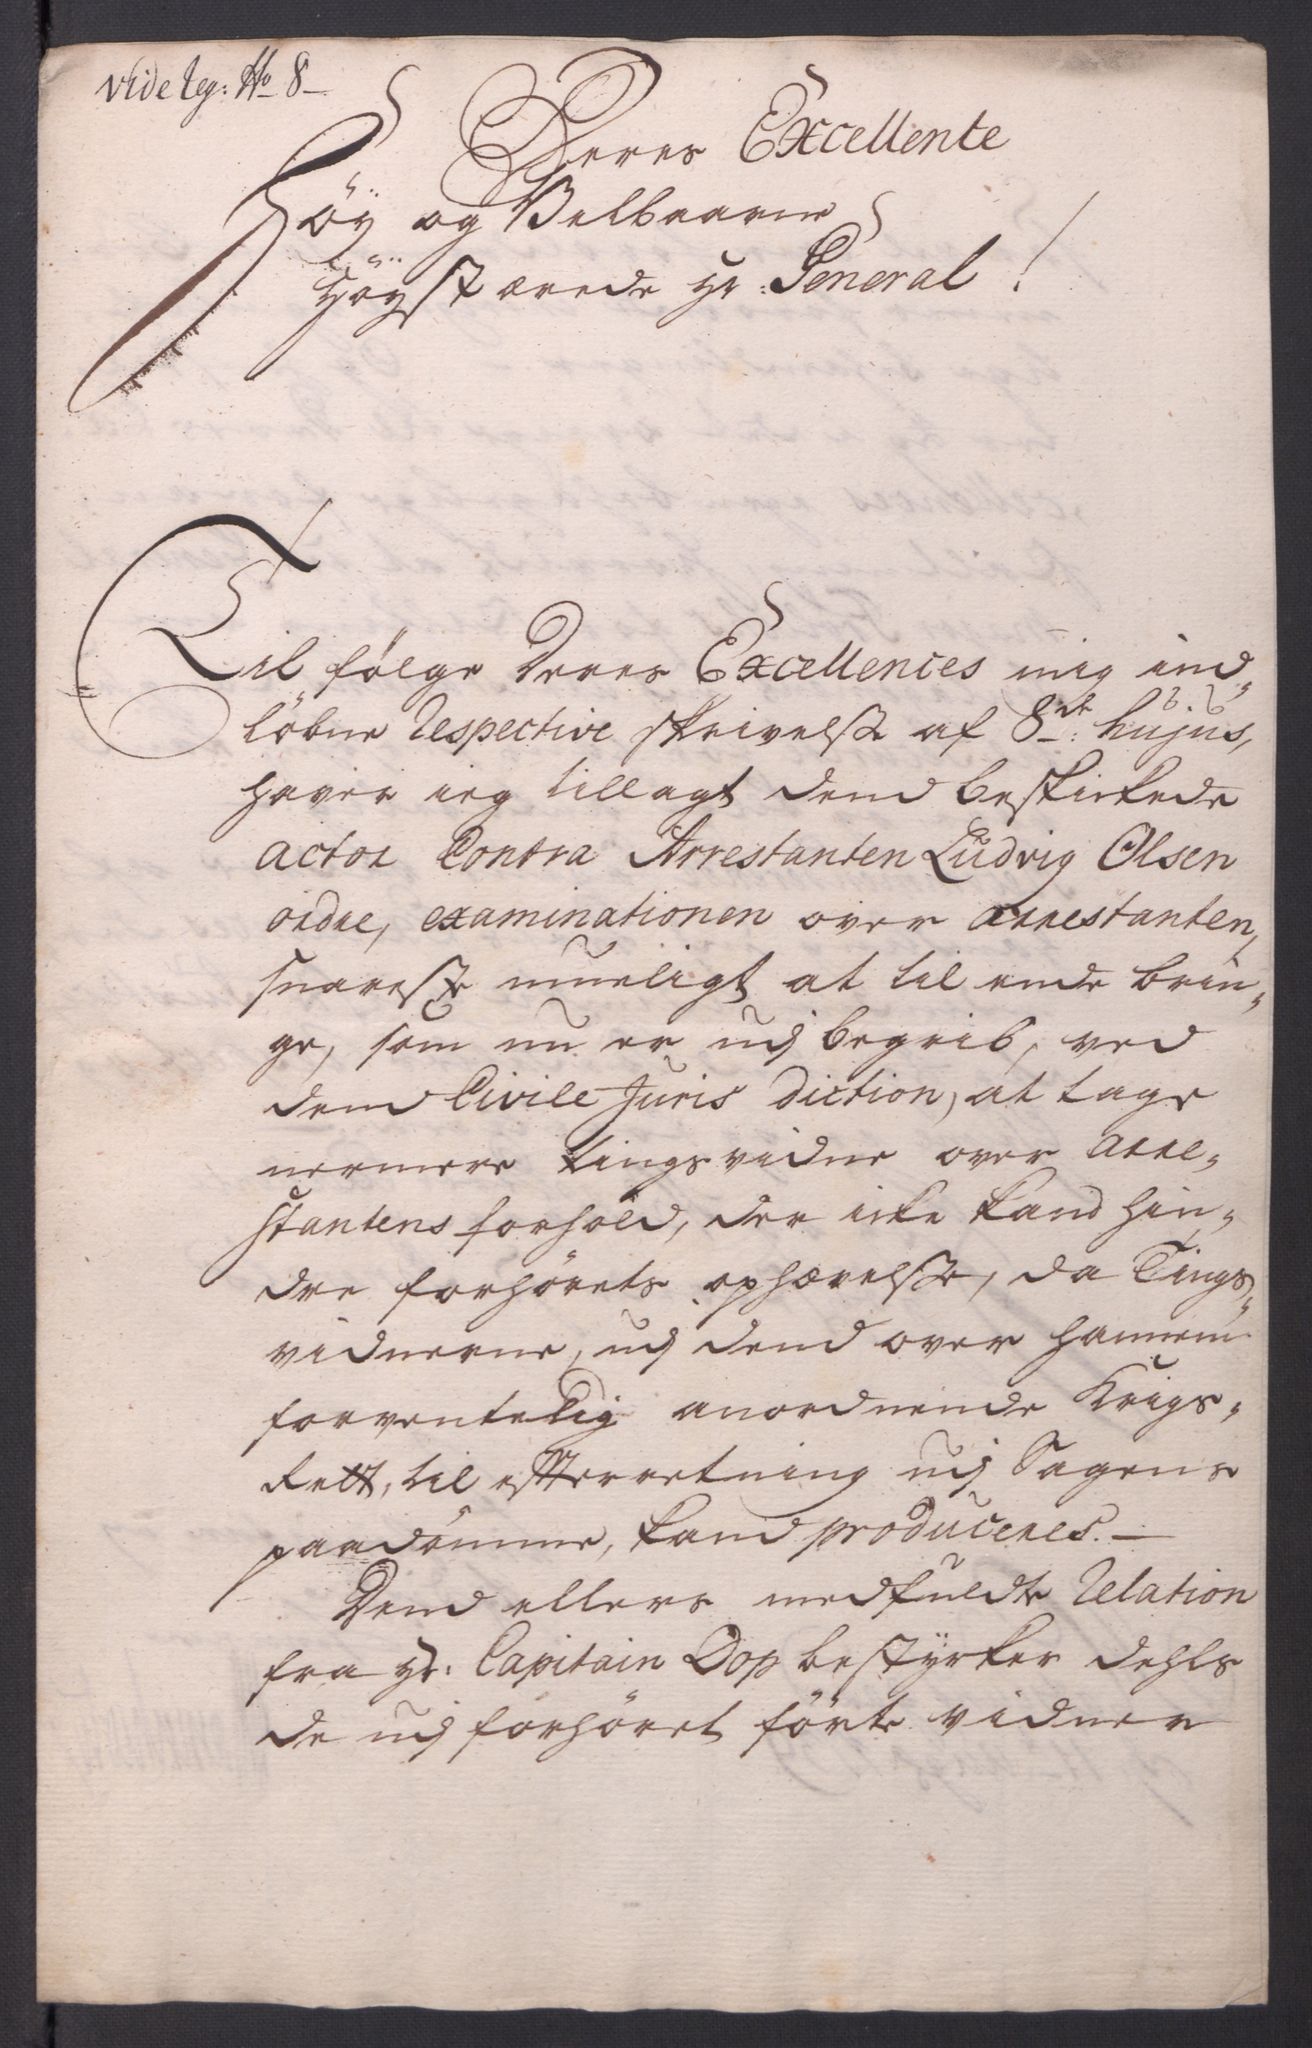 vide Reg: No 8
Deres Excellente
Höy og Velbaarne
Höystærede Hr: General!
Til følge Deres Excellences mig ind„
løbne Respective skrivelse af 8de: hujus,
haver ieg tillagt dend beskikkede
actor Contra Arrestanten Ludvig Olsen
ordre, examinationen over arrestanten,
snareste mueligt at til ende brin„
ge, som nu er udj begrib, ved
dend Civile Juris diction, at tage
nermere tingsvidne over arre„
stantens forhold, der icke kand hin„
dre forhörets ophævelse, da Tings„
vidnerne, udj dend over hannem
forventelig anordnende Krigs„
Rett, til efterretning udj Sagens
paadömme, kand produceres. —
Dend ellers medfuldte Relation
fra Hr: Capitain Dop bestyrker dehls
de udj forhöret förte vidner